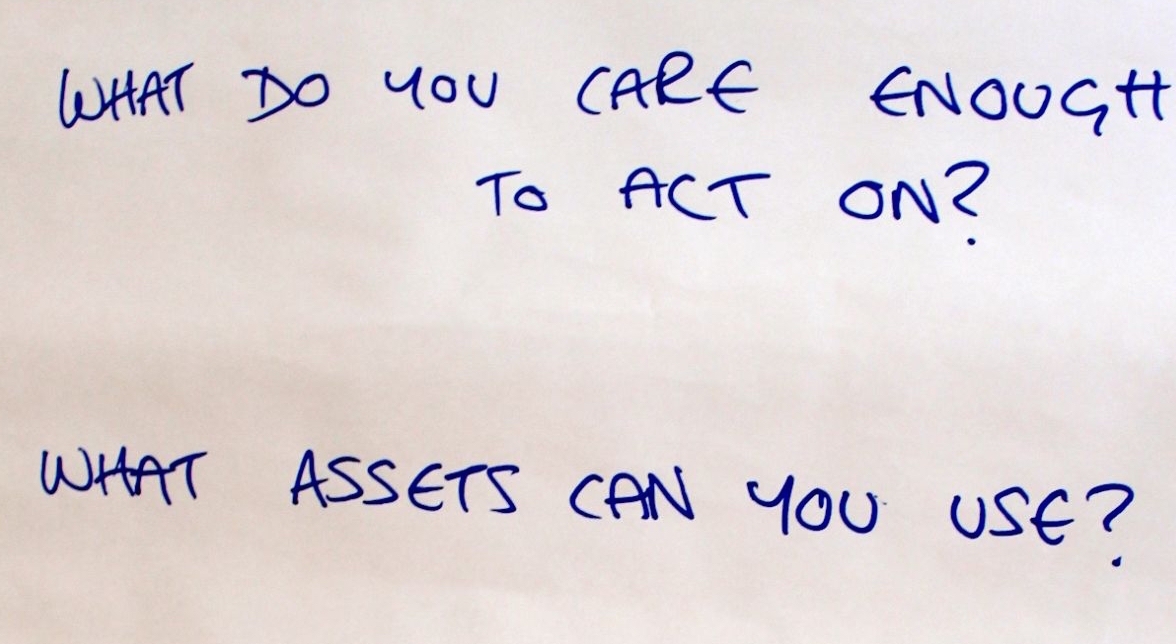 WHAT DO YOU CARE ENOUGH
TO ACT ON?
WHAT ASSETS CAN YOU USE?